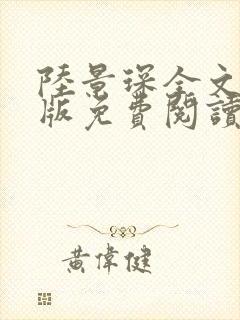 陸景琛全文
版免費閱讀
黃偉健